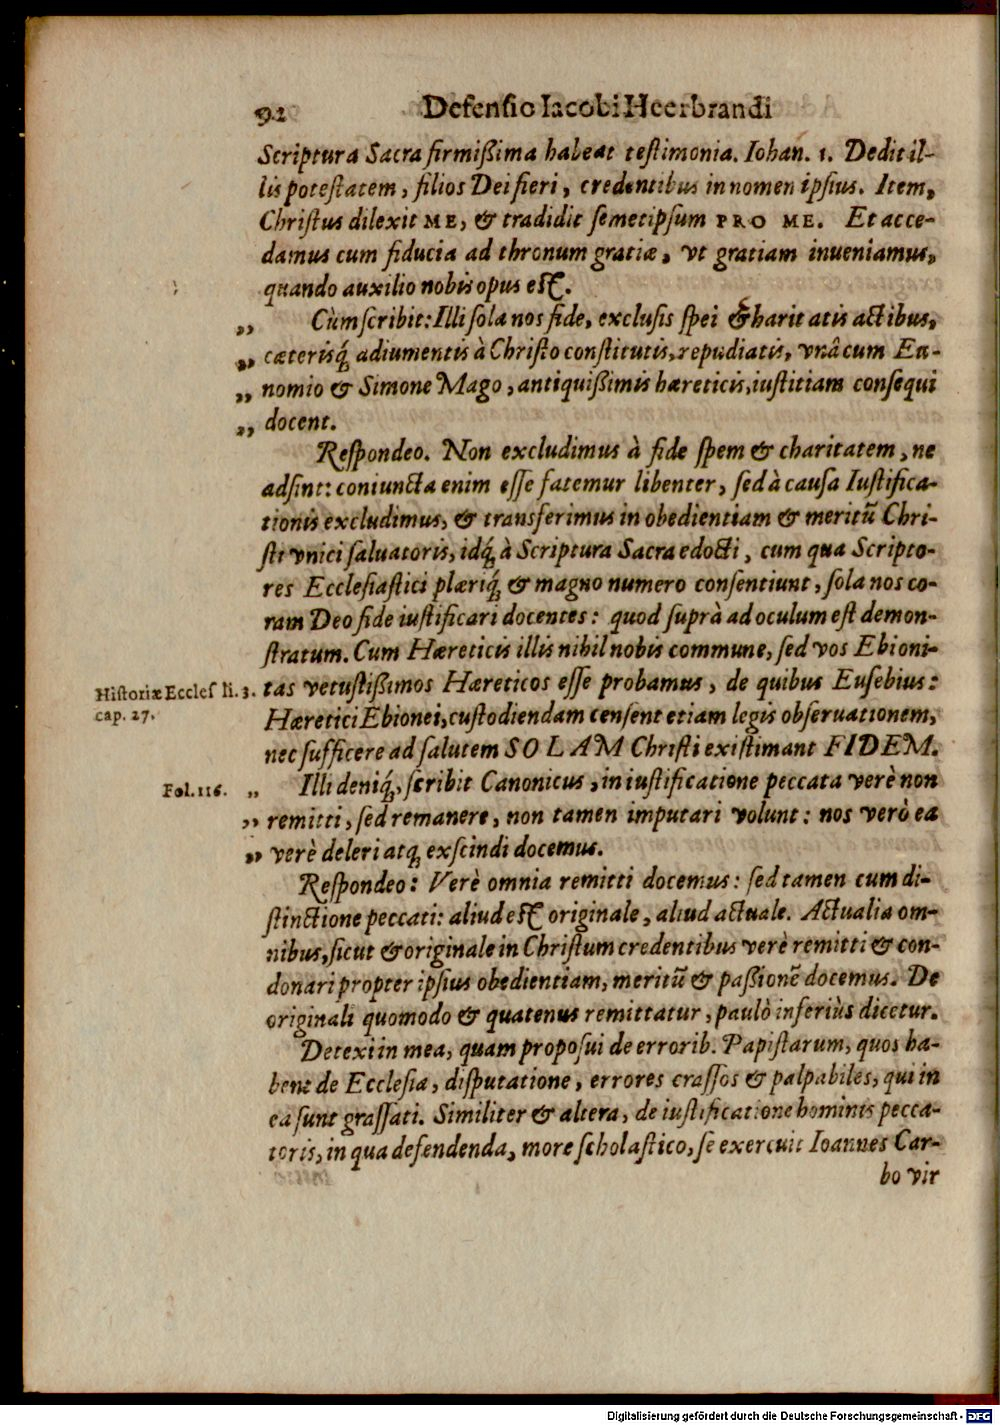 92 Defensio Iacobi Heerbrandi
Scriptura Sacra firmißima habeat testimonia. Iohan. 1. Dedit il-
lis potestatem, filios Dei fieri, credentibus in nomen ipsius. Item,
Christus dilexit ME, & tradidit semetipsum PRO ME. Et acce-
damus cum fiducia ad thronum gratiæ, vt gratiam inueniamus,
quando auxilio nobis opus est.
„ Cùm scribit: Illi sola nos fide, exclusis spei & charitatis actibus,
„ cæterisq́; adiumentis à Christo constitutis, repudiatis, vnâ cum Eu-
„ nomio & Simone Mago, antiquißimis hæreticis, iustitiam consequi
„ docent.
Respondeo. Non excludimus à fide spem & charitatem, ne
adsint: coniuncta enim esse fatemur libenter, sed à causa Iustifica-
tionis excludimus, & transferimus in obedientiam & meritũ Chri-
sti vnici saluatoris, idq́; à Scriptura Sacra edocti, cum qua Scripto-
res Ecclesiastici plæriq́; & magno numero consentiunt, sola nos co-
ram Deo fide iustificari docentes: quod suprà ad oculum est demon-
stratum. Cum Hæreticis illis nihil nobis commune, sed vos Ebioni-
Historiæ Eccles li. 3. tas vetustißimos Hæreticos esse probamus, de quibus Eusebius:
cap. 27. Hæretici Ebionei, custodiendam censent etiam legis obseruationem,
nec sufficere ad salutem SOLAM Christi existimant FIDEM.
Fol. 116. „ Illi deniq́;, scribit Canonicus, in iustificatione peccata verè non
„ remitti, sed remanere, non tamen imputari volunt: nos verò ea
„ verè deleri atq; exscindi docemus.
Respondeo: Verè omnia remitti docemus: sed tamen cum di-
stinctione peccati: aliud est originale, aliud actuale. Actualia om-
nibus, sicut & originale in Christum credentibus verè remitti & con-
donari propter ipsius obedientiam, meritũ & paßionẽ docemus. De
originali quomodo & quatenus remittatur, paulò inferiùs dicetur.
Detexi in mea, quam proposui de errorib. Papistarum, quos ha-
bent de Ecclesia, disputatione, errores crassos & palpabiles, qui in
ea sunt grassati. Similiter & altera, de iustificatione hominis pecca-
toris, in qua defendenda, more scholastico, se exercuit Ioannes Car-
bo vir
Digitalisierung gefördert durch die Deutsche Forschungsgemeinschaft - DFG